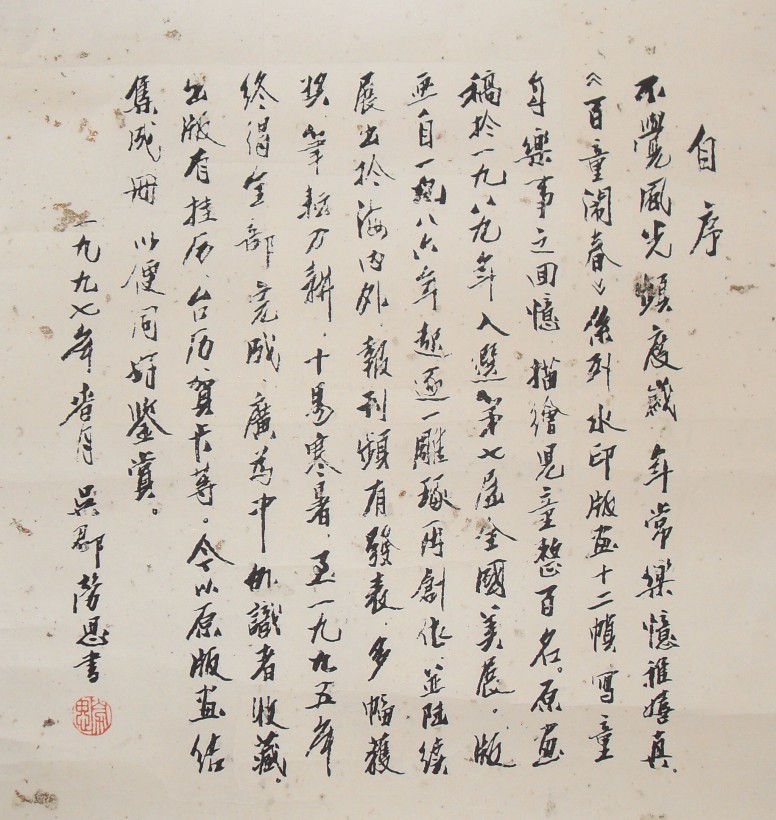 自序
不覺風光頻度歲、年常樂憶稚嬉真、
《百童闹春》系列水印版画十二幀寫童
年樂事之回憶、描繪児童整百名。原画
稿於一九八九年入選第七届全國美展。版
画自一九八六年起逐一雕琢再創作並陆续
展出於海内外、報刊頻有發表、多幅獲
奖、筆耘刀耕、十易寒暑、至一九九五年
终得全部完成、廣為中外識者收藏、
出版有挂历、台历、贺卡等。今以原版画结
集成册以便同好鉴賞。
一九九七年 吴郡劳思书